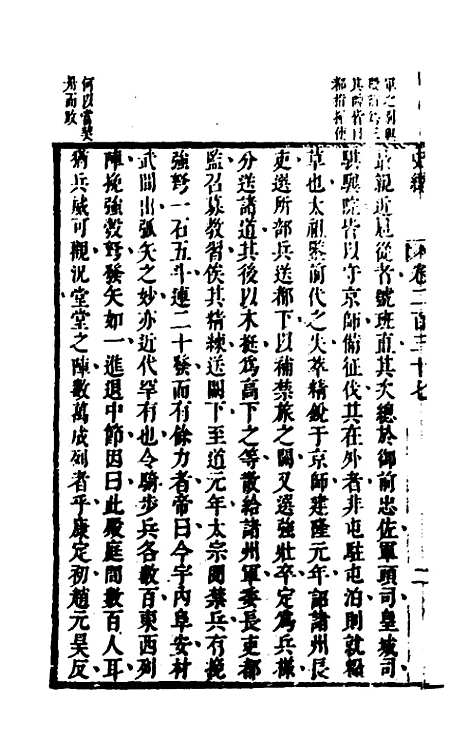 史緯
卷二百三十七
二
京親近扈從者號班直其次總於御前忠佐軍頭司皇城司
騏驥院皆以守京師備征伐其在外者非屯駐屯泊則就粮
草也太祖鑒前代之失萃精銳于京師建隆元年詔諸州長
吏選所部兵送都下以補禁旅之闕又選強壯卒定為兵樣
分送諸道其後以木梃為高下之等散給諸州軍委長吏都
監召募教習俟其精練送闕下至道元年太宗閱禁兵有挽
強弩一石五斗連二十發而有餘力者帝曰今宇內阜安材
武間出弧矢之妙亦近代罕有也令騎步兵各數百東西列
陣挽強彀弩發矢如一進退中節因曰此殿庭間數百人耳
猶兵威可觀況堂堂之陣數萬成列者乎康定初趙元昊反
軍之別與
殿前為三
其時皆曰
都指揮使
何以當契
丹而敗